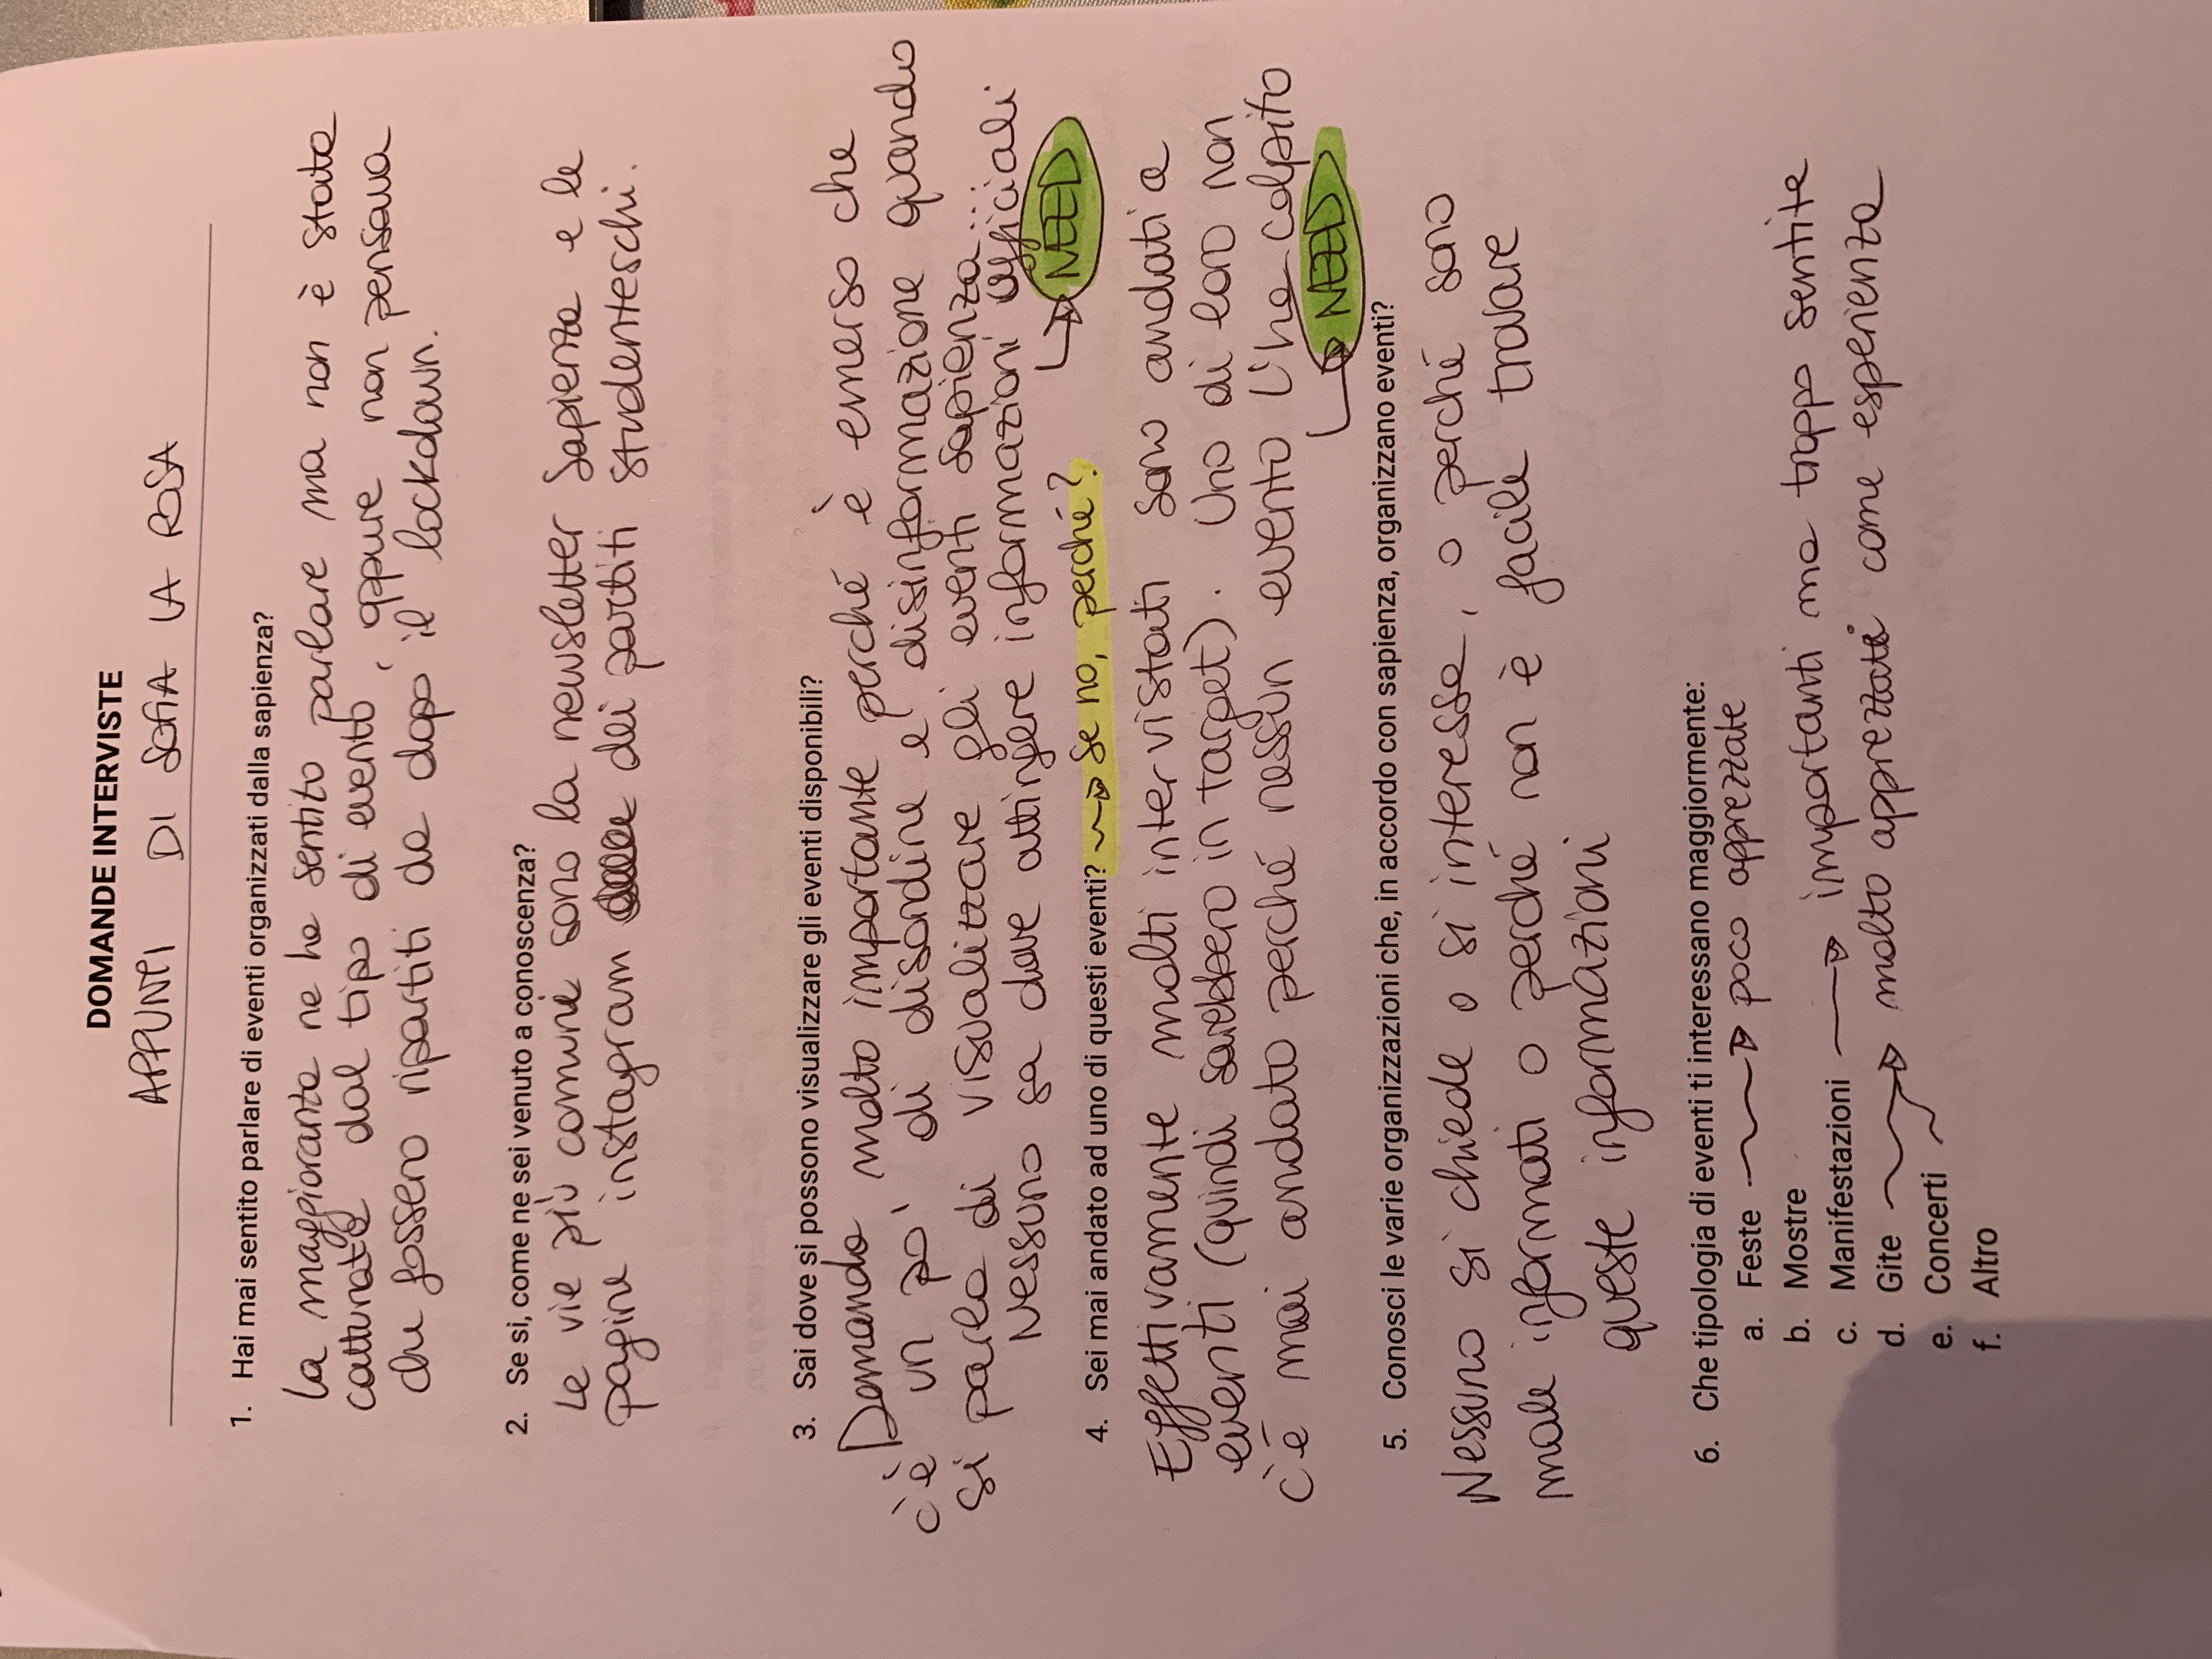 DOMANDE INTERVISTE
APPUNTI DI SOFIA LA ROSA
1. Hai mai sentito parlare di eventi organizzati dalla sapienza?
La maggioranza ne ha sentito parlare ma non è stata
catturata dal tipo di evento, oppure non pensava
che fossero ripartiti da dopo il lockdown.
2. Se si, come ne sei venuto a conoscenza?
Le vie più comuni sono la newsletter Sapienza e le
pagine instagram dei partiti studenteschi.
3. Sai dove si possono visualizzare gli eventi disponibili?
Domanda molto importante perché è emerso che
c'è un po' di disordine e disinformazione quando
si parla di visualizzare gli eventi sapienza...
Nessuno sa dove attingere informazioni ufficiali
NEED
4. Sei mai andato ad uno di questi eventi? Se no, perché?
Effettivamente molti intervistati sono andati a
eventi (quindi sarebbero in target). Uno di loro non
c'è mai andato perché nessun evento l'ha colpito
NEED
5. Conosci le varie organizzazioni che, in accordo con sapienza, organizzano eventi?
Nessuno si chiede o si interessa, o perché sono
male informati o perché non è facile trovare
queste informazioni
6. Che tipologia di eventi ti interessano maggiormente:
a. Feste poco apprezzate
b. Mostre
c. Manifestazioni importanti ma troppo sentite
d. Gite molto apprezzate come esperienza
e. Concerti
f. Altro